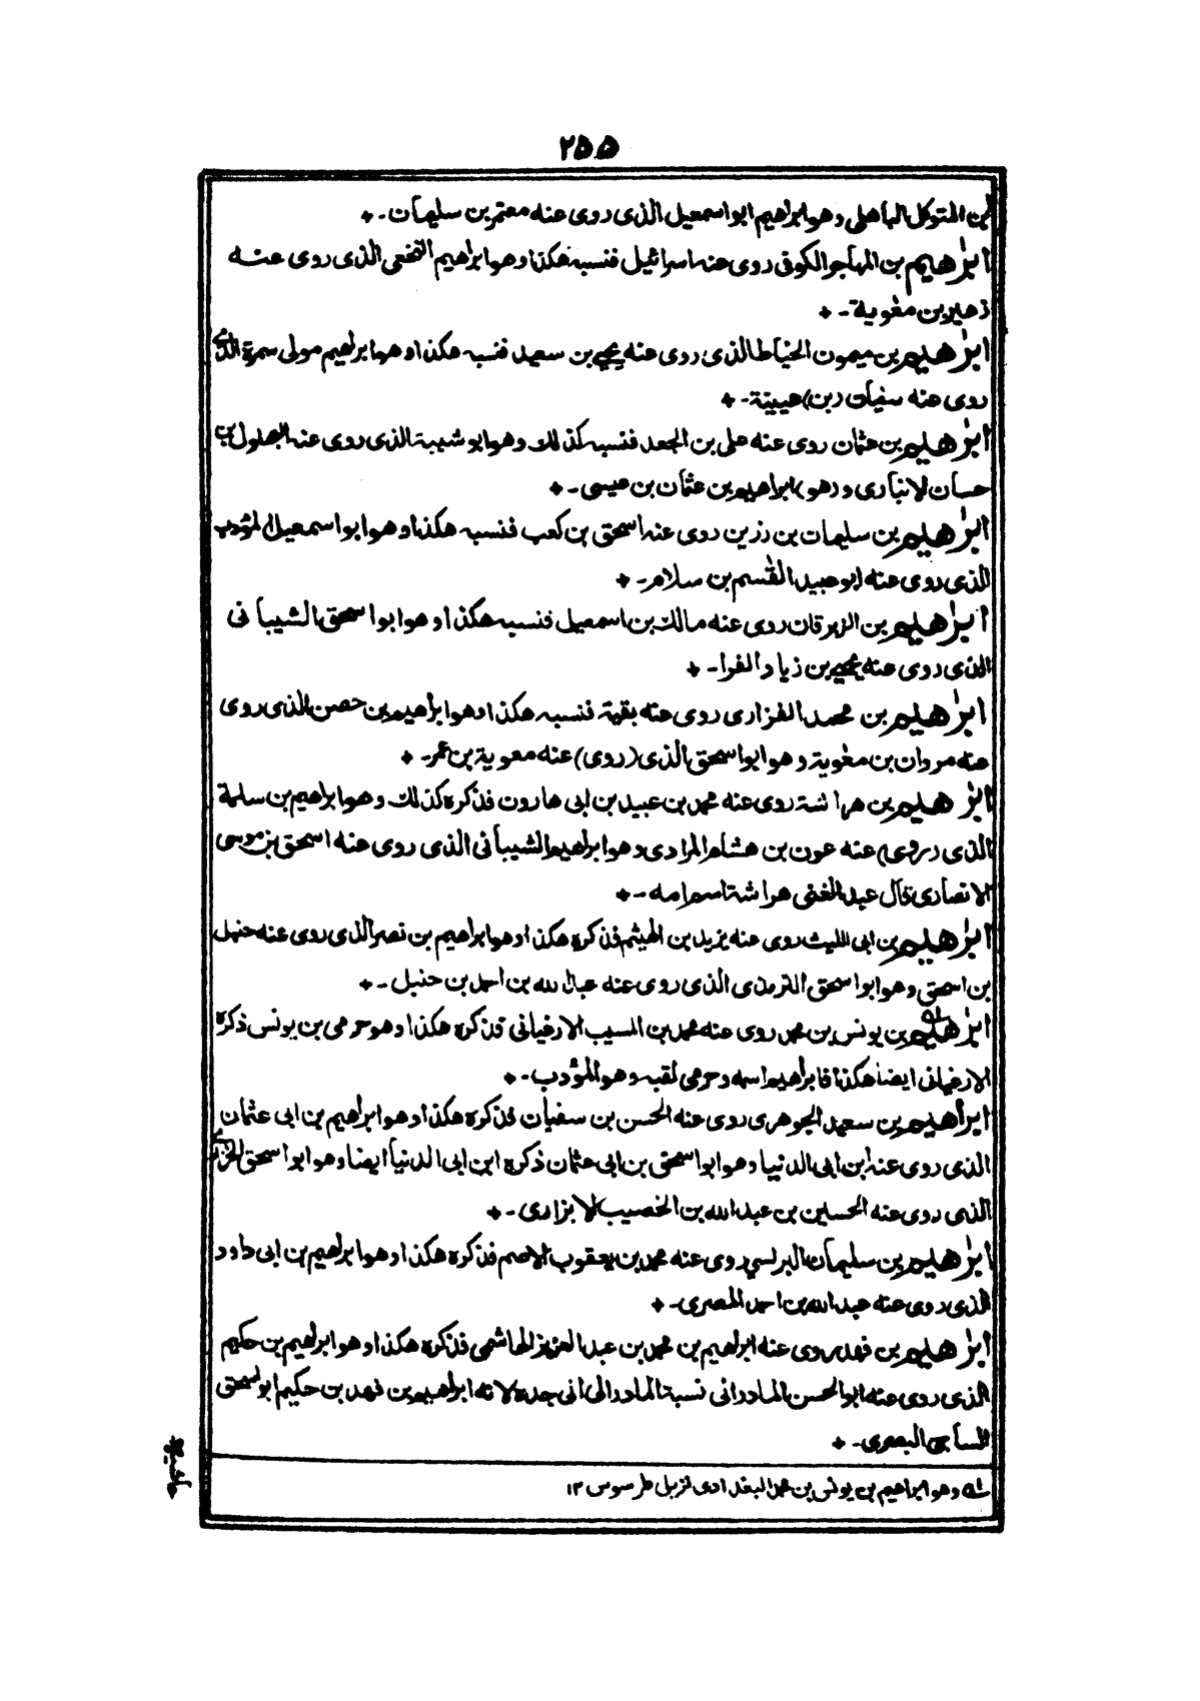 ٢٥٥
بن المتوكل الباهلى وهو ابراهيم ابو اسمعيل الذى روى عنه معتمر بن سليمان ـ ٭
ابرٰهيم بن المهاجر الكوفى روى عنه اسرائيل فنسبه هكذا وهو ابراهيم النخعى الذى روى عنه
زهير بن معٰوية ـ ٭
ابرٰهيم بن ميمون الحناط الذى روى عنه يحيى بن سعيد فنسبه هكذا وهو ابرٰهيم مولى سمرة الذى
روى عنه سفيان (بن) عيينة ـ ٭
ابرٰهيم بن عثمان روى عنه على بن الجعد فنسبه كذلك وهو ابو شيبة الذى روى عنه البهلول بن
حسان الانبارى و(هو) ابراهيم بن عثمان بن عيسى ـ ٭
ابرٰهيم بن سليمان بن رزين روى عنه اسحق بن كعب فنسبه هكذا وهو ابو اسمعيل المؤدب
الذى روى عنه ابو عبيد القٰسم بن سلام ـ ٭
ابرٰهيم بن الزبرقان روى عنه مالك بن اسمعيل فنسبه هكذا وهو ابو اسحق الشيبانى
الذى روى عنه يحيى بن زياد الفرا ـ ٭
ابرٰهيم بن محمد الفزارى روى عنه بقية فنسبه هكذا وهو ابراهيم بن حصن الذى روى
عنه مروان بن معٰوية وهو ابو اسحق الذى (روى) عنه معوية بن عمر ـ ٭
ابرٰهيم بن هراشة روى عنه محمد بن عبيد بن ابى هارون فذكره كذلك وهو ابراهيم بن سلمة
الذى (روى) عنه عون بن هشام المرادى وهو ابراهيم الشيبانى الذى روى عنه اسحق بن موسى
الانصارى قال عبد الغنى هراشة اسم امه ـ ٭
ابرٰهيم بن ابى الليث روى عنه يزيد بن الهيثم فذكره هكذا وهو ابراهيم بن نصر الذى روى عنه حنبل
بن اسحق وهو ابو اسحق الترمذى الذى روى عنه عبد الله بن احمد بن حنبل ـ ٭
ابرٰهيم بن يونس بن محمد روى عنه محمد بن المسيب الارغيانى فذكره هكذا وهو حرمى بن يونس ذكره
الارغيانى ايضا هكذا فابراهيم اسمه وحرمى لقبه وهو المؤدب ـ ٭
ابرٰهيم بن سعيد الجوهرى روى عنه الحسن بن سفيان فذكره هكذا وهو ابراهيم بن ابى عثمان
الذى روى عنه ابن ابى الدنيا وهو ابو اسحق بن ابى عثمان ذكره ابن ابى الدنيا ايضا وهو ابو اسحق
الذى روى عنه الحسين بن عبد الله بن الخصيب الابزارى ـ ٭
ابرٰهيم بن سليمان البرلسي روى عنه محمد بن يعقوب الاصم فذكره هكذا وهو ابراهيم بن ابى داود
الذى روى عنه عبد الله بن احمد المصرى ـ ٭
ابرٰهيم بن فهد روى عنه ابراهيم بن محمد بن عبد العزيز الهاشمى فذكره هكذا وهو ابرٰهيم بن حكيم
الذى روى عنه ابو الحسن المادرانى نسبة المادرانى الى جده لانه ابراهيم بن فهد بن حكيم ابو اسحق
الساجى البصرى ـ ٭
وهو ابراهيم بن يونس بن محمد البغدادى نزيل طرسوس ١٢
حاشيه